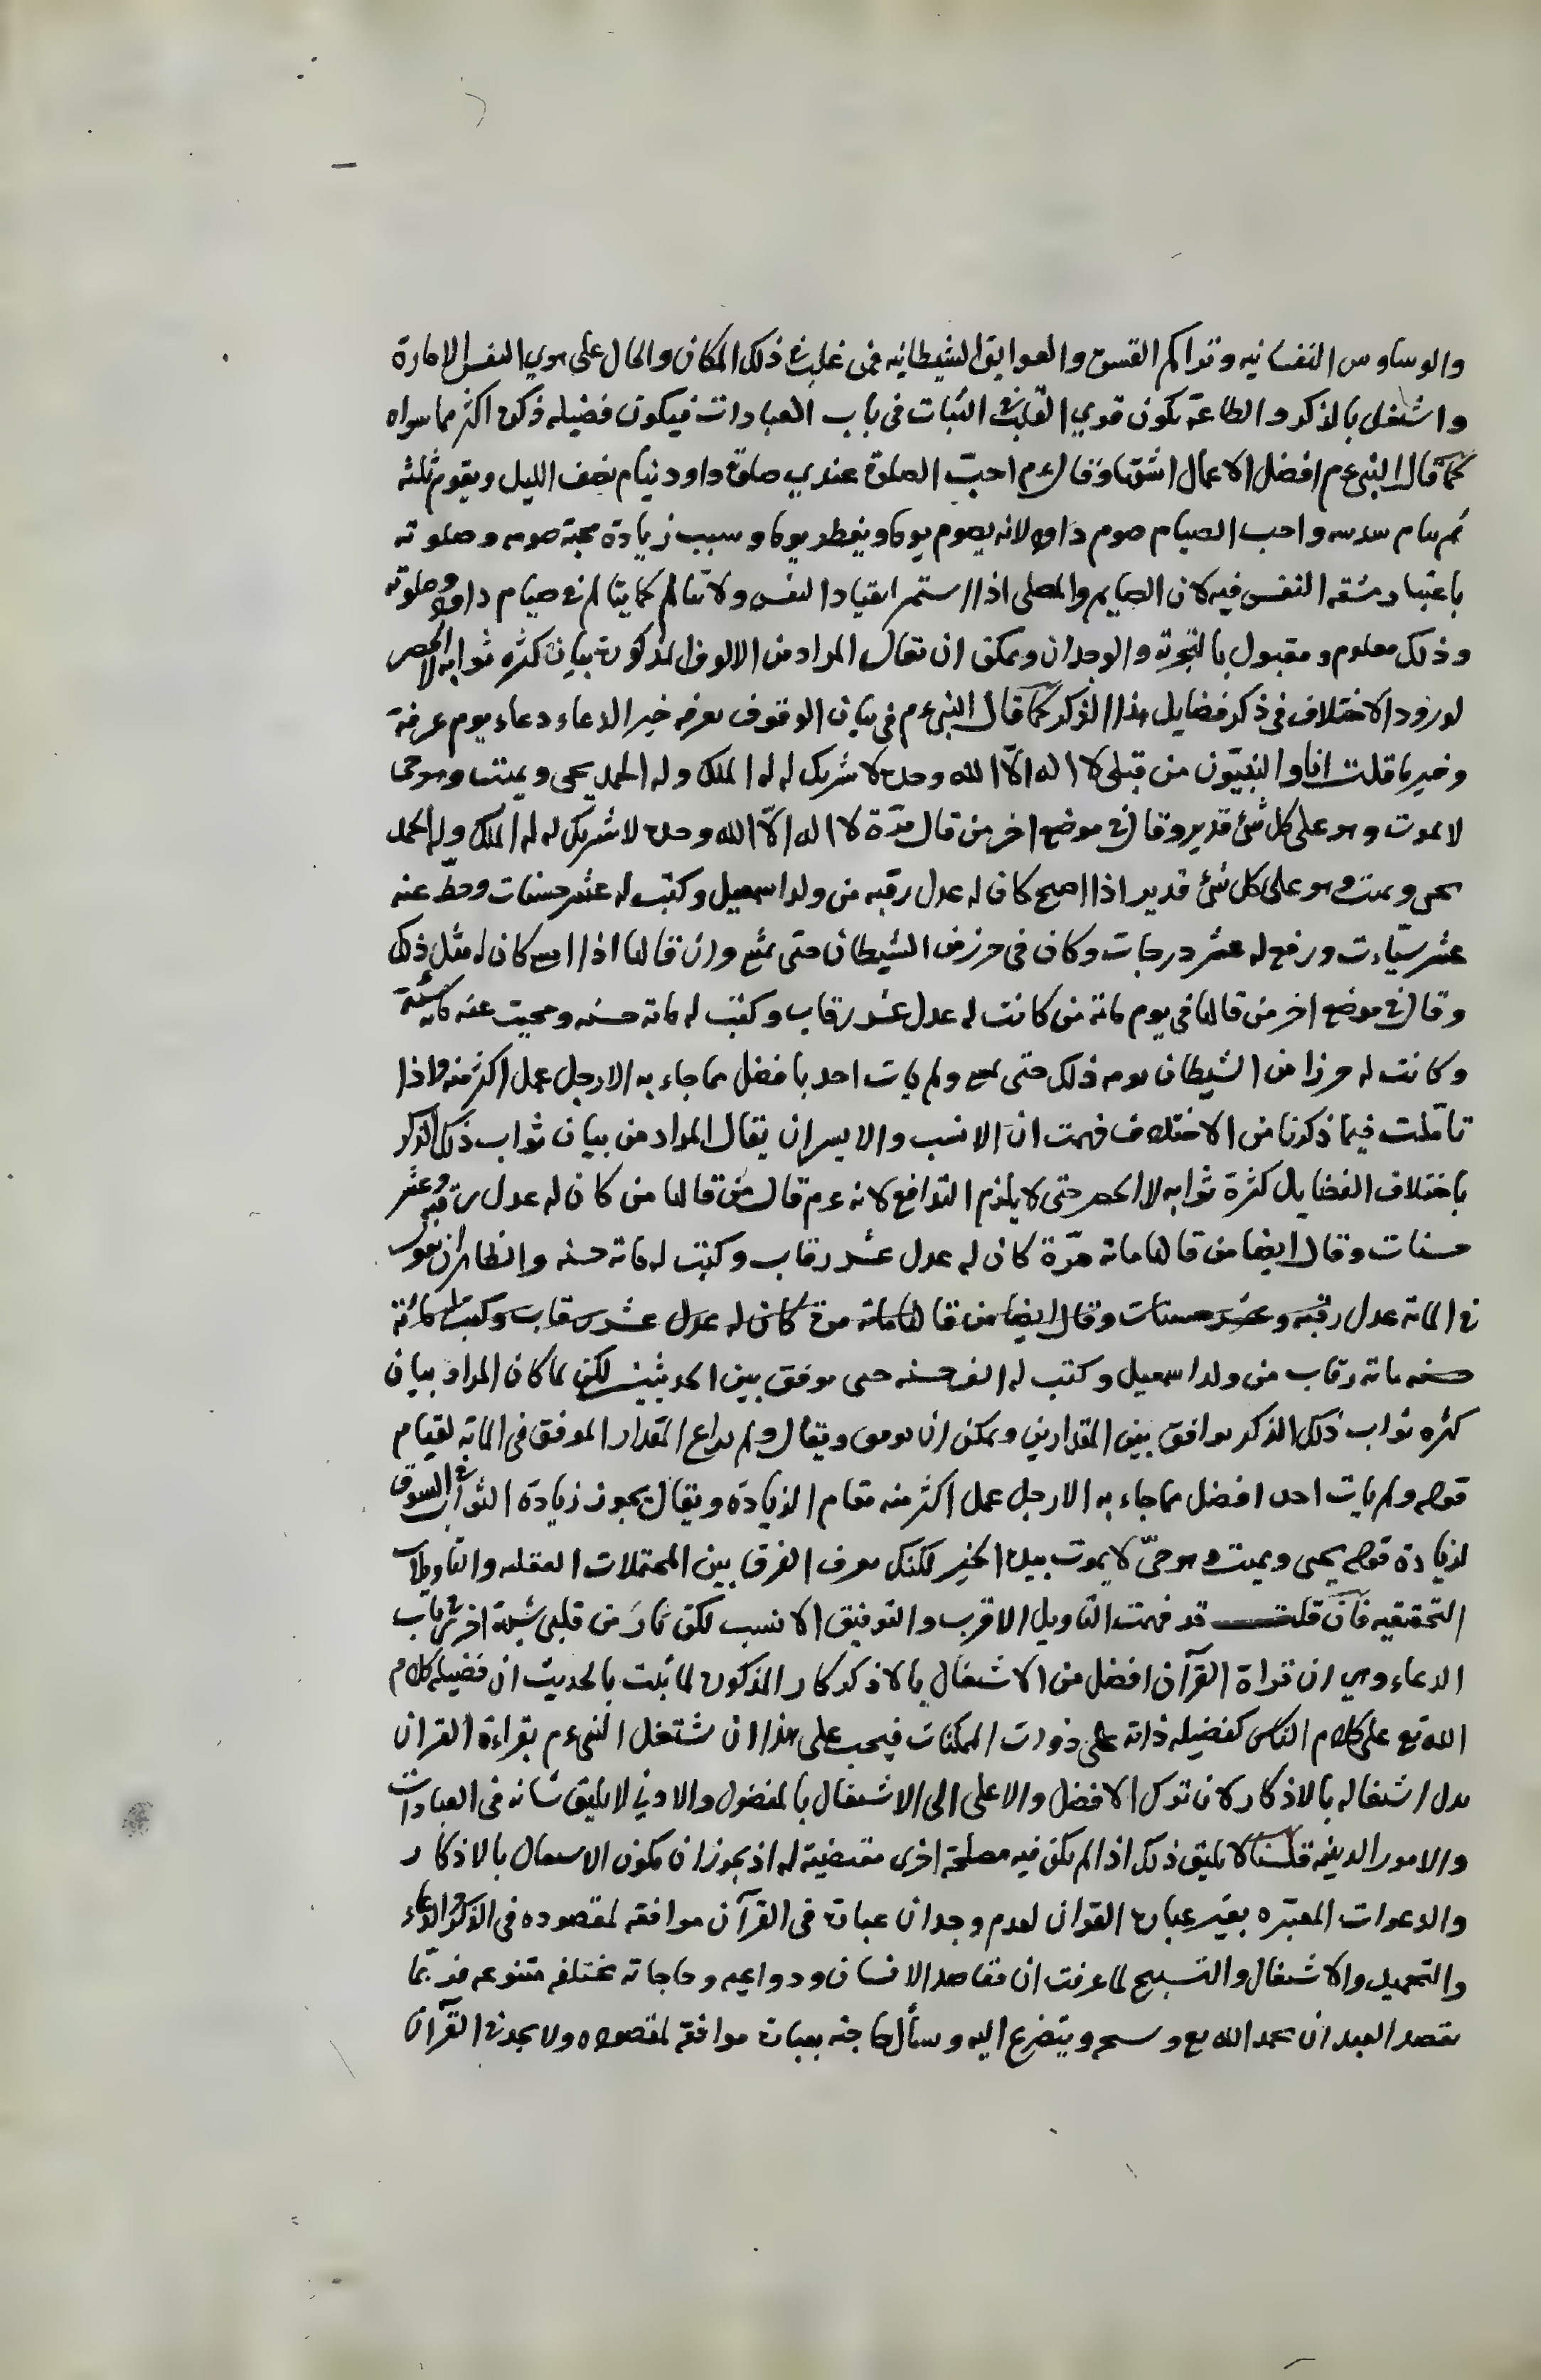 والوساوس النفسانيه وتراكم القسوة والعوايق الشيطانيه فمن غلب في ذلك المكان والحال على هوي النفس الامارة
واشتغل بالذكر والطاعة يكون قوي القلب في الثبات في باب العبادات فيكون فضيله ذكره اكثر مما سواه
كما قال النبى عم افضل الاعمال اشقها وقال عم احبّ الصلوة عندي صلوة داود ينام نصف الليل ويقوم ثلثه
ثم ينام سدسه واحب الصيام صوم داود لانه يصوم يوما ويفطر يوما وسبب زيادة محبة صومه وصلوته
باعتبار مشقه النفس فيه لان الصايم والمصلى اذا استمر انقياد النفس ولا تتالم كما يتالم في صيام داود وصلوته
وذلك معلوم ومقبول بالتجربة والوجدان ويمكن ان تقال المراد من الالوف المذكورة بيان كثره ثوابه لا الحصر
لورود الاختلاف في ذكر فضايل هذا الذكر كما قال النبى عم في بيان الوقوف بعرفه خير الدعاء دعاء يوم عرفة
وخير ما قلت انا والنبيّون من قبلي لا اله الاّ الله وحده لا شريك له له الملك وله الحمد يحى ويميت وهو حى
لا يموت وهو على كل شئ قدير وقال في موضع اخر من قال مرّة لا اله الاّ الله وحده لا شريك له له الملك وله الحمد
يحى ويميت وهو على كل شئ قدير اذا اصبح كان له عدل رقبه من ولد اسمعيل وكتب له عشر حسنات وحطّ عنه
عشر سيّاءت ورفع له عشر درجات وكان في حرز من الشيطان حتى يمسى وان قالها اذا امسى كان له مثل ذلك
وقال في موضع اخر من قالها في يوم مائة من كانت له عدل عشر رقاب وكتبت له مائة حسنه ومحيت عنه مائة سيّئة
وكانت له حرزا من الشيطان يومه ذلك حتى يمسى ولم يات احد بافضل مما جاء به الا رجل عمل اكثر منه واذا
تامّلت فيما ذكرنا من الاختلاف فهمت انّ الانسب والايسر ان يقال المراد من بيان ثواب ذلك الذكر
باختلاف الفضايل كثرة ثوابه لا الحصر حتى لا يلزم التدافع لانه عم قال من قالها من كان له عدل رقبه وعشر
حسنات وقال ايضا من قالها مائة مرّة كان له عدل عشر رقاب وكتبت له مائة حسنه والظاهر ان يقول
في المائة عدل رقبه وعشر حسنات وقال ايضا من قالها مائة مرة كان له عدل عشر رقاب وكتبت له مائة
حسنه مائة رقاب من ولد اسمعيل وكتب له الف حسنه حتى يوفق بين الحديثين لكن لما كان المراد بيان
كثره ثواب ذلك الذكر يوافق بين المقدارين ويمكن ان يوفق ويقال ولم يراع المقدار الموفق في المائة لقيام
قوله ولم يات احد افضل مما جاء به الا رجل عمل اكثر منه مقام الزيادة ويقال يجوز زيادة الثواب في السوق
لزيادة قوله يحيى ويميت وهو حىّ لا يموت بيده الخير لكنك تعرف الفرق بين المحتملات العقليه والتاويلات
التحقيقيه فان قلت قد فهمت التاويل الاقرب والتوفيق الانسب لكن ثار من قلبى شبهة اخرى في باب
الدعاء وهي ان قراة القرآن افضل من الاشتغال بالاذكار المذكورة لما ثبت بالحديث ان فضيله كلام
الله تع على كلام الناس كفضيله ذاته على ذوات الممكنات فيجب على هذا ان يشتغل النبى عم بقراءة القران
بدل اشتغاله بالاذكار لان ترك الافضل والاعلى الى الاشتغال بالمفضول والادنى لا يليق شانه في العبادات
والامور الدينيه قلنا لا يليق ذلك اذا لم يكن فيه مصلحة اخرى مقتضية له اذ يجوز ان يكون الاشتغال بالاذكار
والدعوات المعتبره بغير عبارة القران لعدم وجدان عبارة في القرآن موافقه لمقصوده في الذكر والدعاء
والتحميد والاشتغال والتسبيح لما عرفت ان مقاصد الانسان ودواعيه وحاجاته مختلفه متنوعه فربّما
يقصد العبد ان يحمد الله تع ويسبحه ويتضرع اليه ويسأل حاجته بعبارة موافقة لمقصوده ولا يجد في القرآن